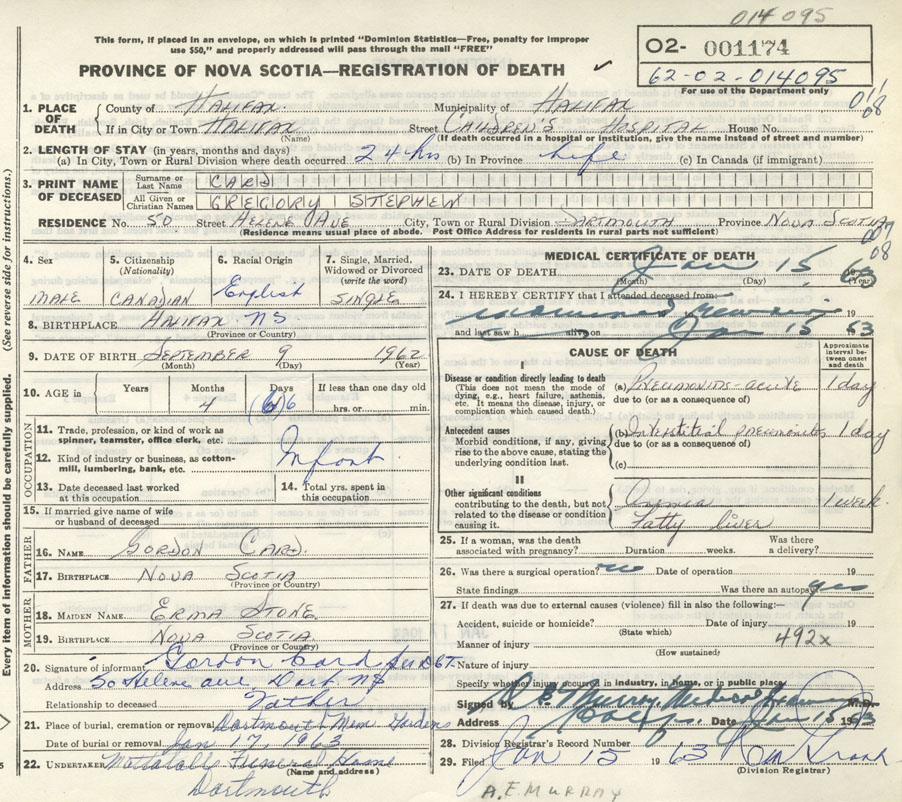 014095
This form, if placed in an envelope, on which is printed "Dominion Statistics—Free, penalty for improper
use $50," and properly addressed will pass through the mail "FREE"
PROVINCE OF NOVA SCOTIA—REGISTRATION OF DEATH
O2- 001174
62-02-014095
For use of the Department only
1. PLACE OF DEATH
County of Halifax Municipality of Halifax
If in City or Town Halifax Street Children's Hospital House No.
(Name) (If death occurred in a hospital or institution, give the name instead of street and number)
2. LENGTH OF STAY (in years, months and days)
(a) In City, Town or Rural Division where death occurred 24 hrs (b) In Province life (c) In Canada (if immigrant)
3. PRINT NAME OF DECEASED
Surname or Last Name CARD
All Given or Christian Names GREGORY STEPHEN
RESIDENCE No. 50 Street Helene Ave City, Town or Rural Division Dartmouth Province Nova Scotia
(Residence means usual place of abode. Post Office Address for residents in rural parts not sufficient)
4. Sex
MALE
5. Citizenship (Nationality)
CANADIAN
6. Racial Origin
English
7. Single, Married, Widowed or Divorced (write the word)
SINGLE
8. BIRTHPLACE Halifax NS
(Province or Country)
9. DATE OF BIRTH September 9 1962
(Month) (Day) (Year)
10. AGE in Years Months 4 Days 6 If less than one day old
hrs. or min.
OCCUPATION
11. Trade, profession, or kind of work as spinner, teamster, office clerk, etc.
12. Kind of industry or business, as cotton-mill, lumbering, bank, etc.
Infant
13. Date deceased last worked at this occupation
14. Total yrs. spent in this occupation
15. If married give name of wife or husband of deceased
FATHER
16. NAME Gordon Card
17. BIRTHPLACE Nova Scotia
(Province or Country)
MOTHER
18. MAIDEN NAME Erma Stone
19. BIRTHPLACE Nova Scotia
(Province or Country)
20. Signature of informant Gordon Card
Address 50 Helene ave Dart. NS
Relationship to deceased Father
21. Place of burial, cremation or removal Dartmouth Mem Gardens
Date of burial or removal Jan 17, 1963
22. UNDERTAKER Funeral Home
(Name and address)
Dartmouth
MEDICAL CERTIFICATE OF DEATH
23. DATE OF DEATH Jan 15 1963
(Month) (Day) (Year)
24. I HEREBY CERTIFY that I attended deceased from: 19
and last saw h alive on Jan 15 1963
CAUSE OF DEATH
Approximate interval between onset and death
I
Disease or condition directly leading to death
(This does not mean the mode of dying, e.g., heart failure, asthenia, etc. It means the disease, injury, or complication which caused death.)
(a) Pneumonia-acute 1 day
due to (or as a consequence of)
Antecedent causes
Morbid conditions, if any, giving rise to the above cause, stating the underlying condition last.
(b) Interstitial pneumonitis 1 day
due to (or as a consequence of)
(c)
II
Other significant conditions
contributing to the death, but not related to the disease or condition causing it.
1 week
Fatty liver
25. If a woman, was the death associated with pregnancy? Duration weeks. Was there a delivery?
26. Was there a surgical operation? no Date of operation 19
State findings Was there an autopsy yes
27. If death was due to external causes (violence) fill in also the following:—
Accident, suicide or homicide? Date of injury 19
(State which)
Manner of injury 492x
(How sustained)
Nature of injury
Specify whether injury occurred in industry, in home, or in public place.
Signed by M.D.
Address Date Jan 15 1963
28. Division Registrar's Record Number
29. Filed Jan 15 1963
(Division Registrar)
A.E. MURRAY
(See reverse side for instructions.)
Every item of information should be carefully supplied.